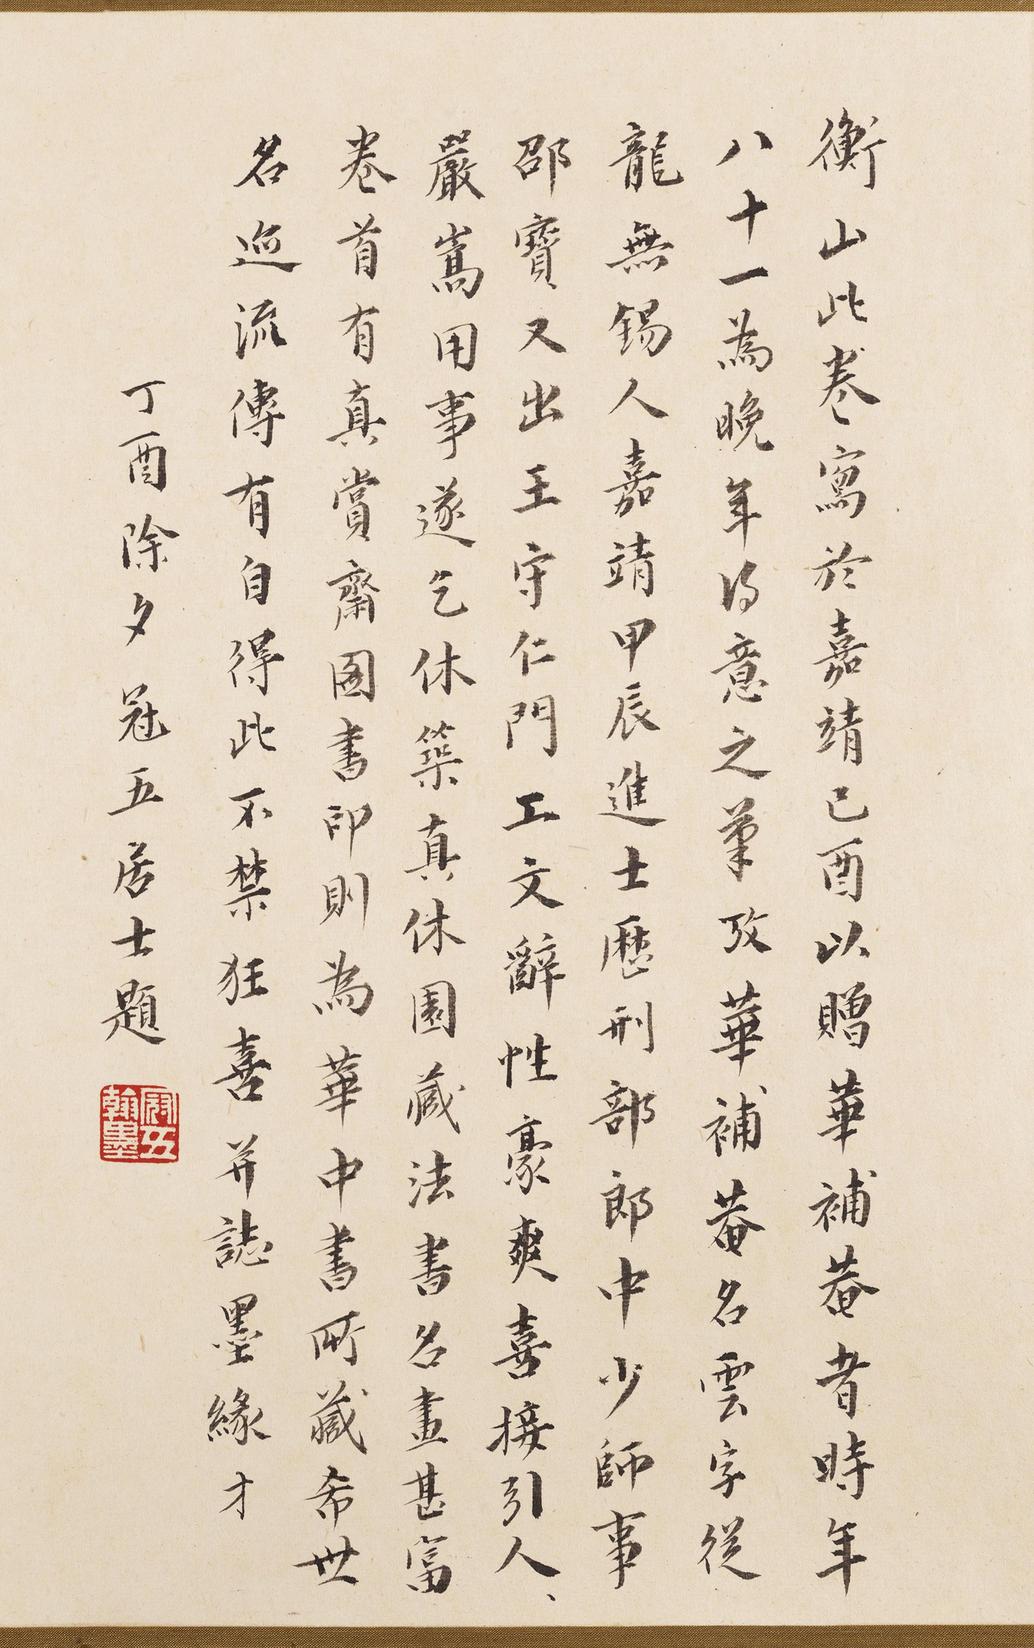 衡山此卷寫於嘉靖己酉以贈華補菴者時年
八十一為晚年得意之筆攷華補菴名雲字從
龍無錫人嘉靖甲辰進士歷刑部郎中少師事
邵寶又出王守仁門工文辭性豪爽喜接引人、
嚴嵩用事遂乞休築真休園藏法書名畫甚富
卷首有真賞齋圖書印則為華中書所藏希世
名迹流傳有自得此不禁狂喜并誌墨緣才
丁酉除夕冠五居士題
冠五
翰墨